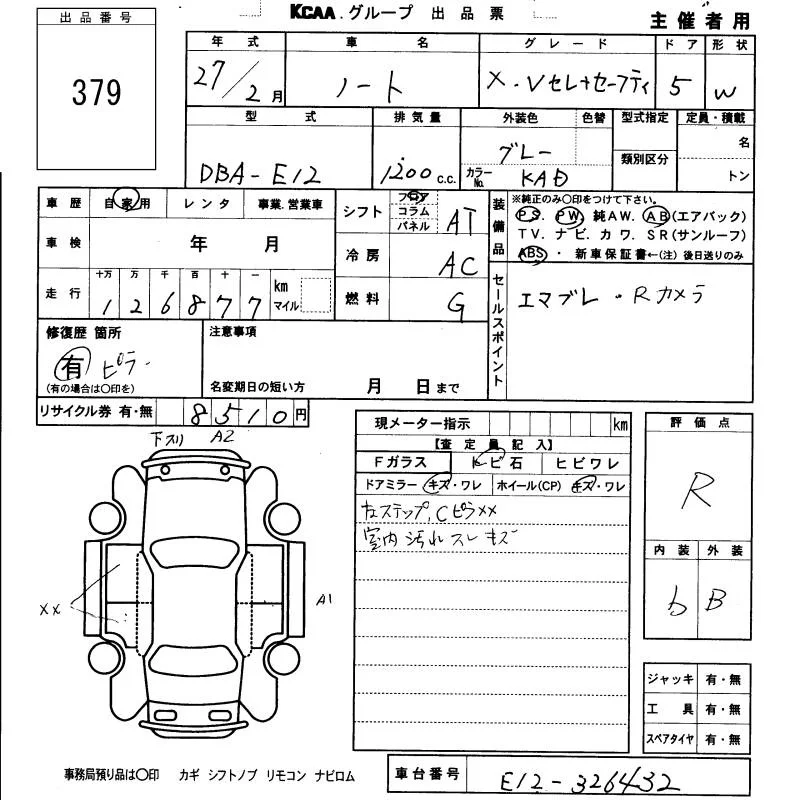 出品番号
379
KCAA.グループ 出品票
主催者用
年式 車名 グレード ドア 形状
27/2月 ノート X.Vセレ+セーフティ 5 W
型式 排気量 外装色 色替 型式指定 定員・積載
DBA-E12 1200c.c. グレー 類別区分 名
カラーNo. KAD トン
車歴 自家用 レンタ 事業.営業車
シフト フロア コラム パネル AT
装備品 ※純正のみ○印をつけて下さい。
PS. PW. 純AW. AB(エアバック)
TV. ナビ. カワ. SR(サンルーフ)
ABS. 新車保証書←(注)後日送りのみ
車検 年 月
冷房 AC
走行 十万 万 千 百 十 一 km マイル
126877
燃料 G
セールスポイント エマブレ・Rカメラ
修復歴 箇所
有 ピラー
(有の場合は○印を)
注意事項
名変期日の短い方 月 日まで
リサイクル券 有・無 8510円
現メーター指示 km
【査定員記入】
Fガラス トビ石 ヒビワレ
ドアミラー キズ・ワレ ホイール(CP) キズ・ワレ
左ステップ、Cピラ××
室内 汚れ スレ キズ
評価点
R
内装 外装
b B
下スリ A2
××
A1
ジャッキ 有・無
工具 有・無
スペアタイヤ 有・無
事務局預り品は○印 カギ シフトノブ リモコン ナビロム
車台番号 E12-326432